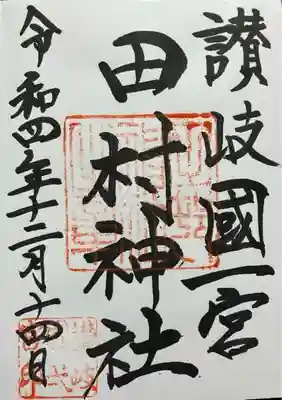 讃岐國一宮
田村神社
令和四年十二月十四日